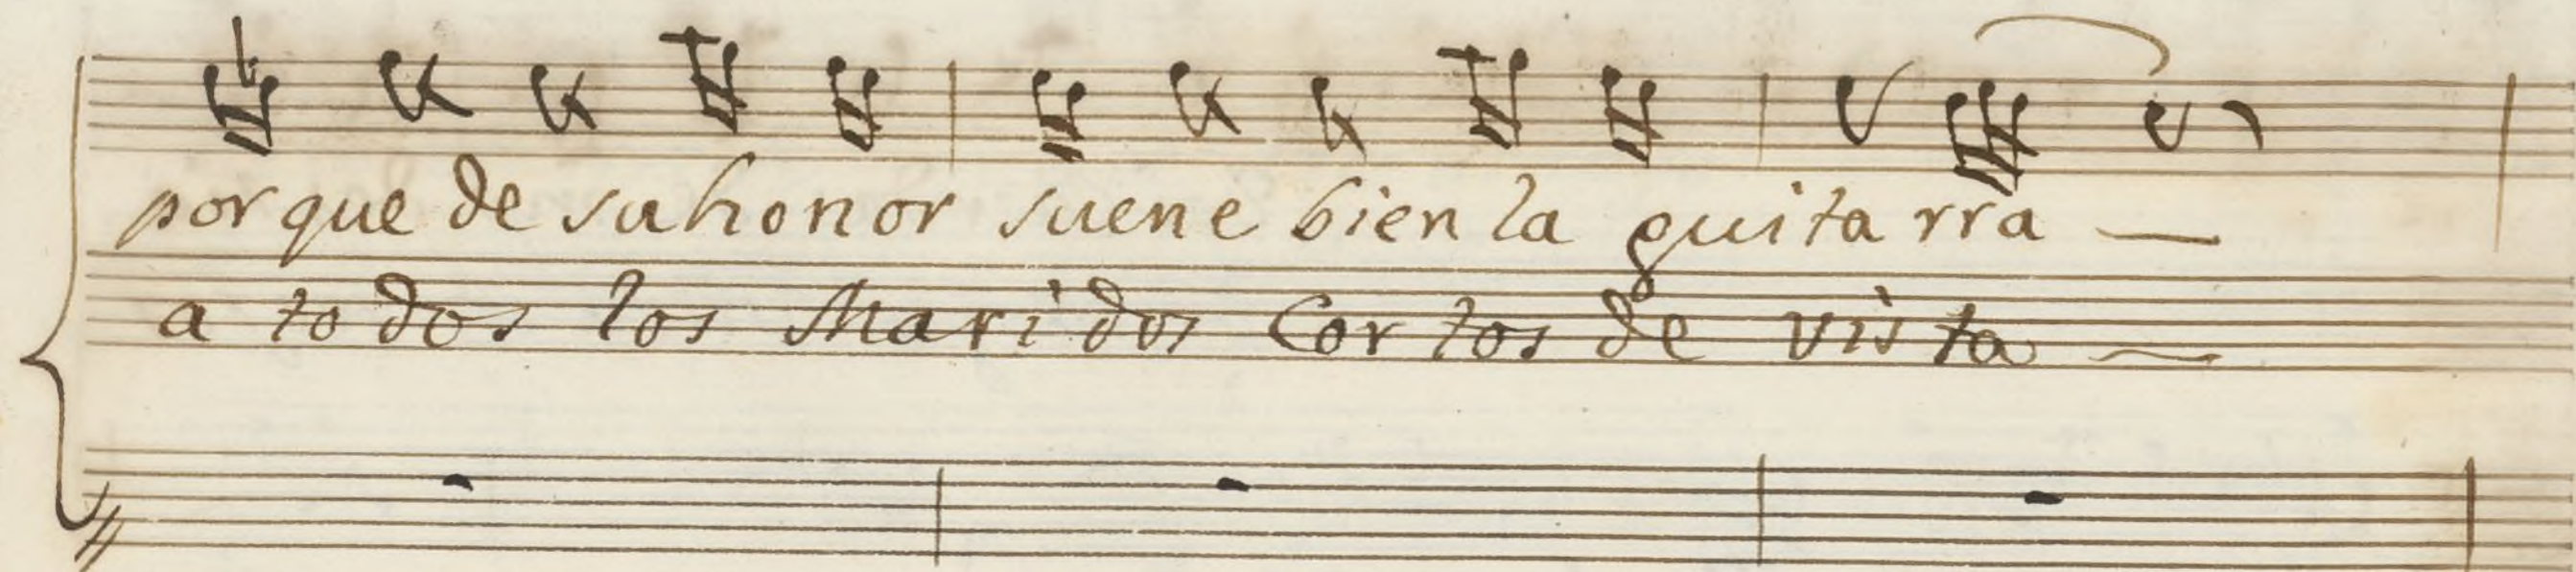 por que de su honor suene bien la guita rra
a to dos los Mari dos Cor tos de vis ta